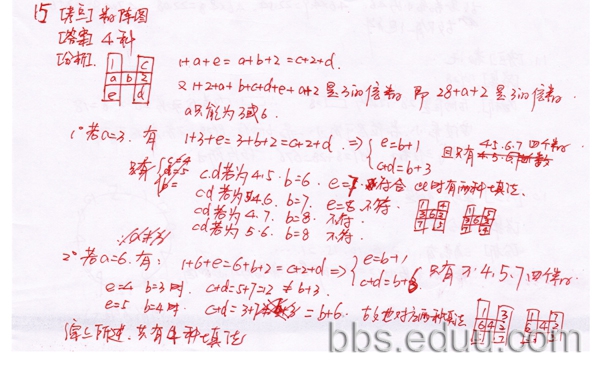 15 [考点] 数阵图
[答案] 4种
[分析]
1 c
a b 2
e d
1+a+e = a+b+2 = c+2+d.
又 1+2+a+b+c+d+e+a+2 是3的倍数 即 28+a+2 是3的倍数.
a只能为3或6.
1° 若a=3. 有 1+3+e = 3+b+2 = c+2+d. ⇒ { e=b+1
c+d=b+3
且只有 4.5.6.7 四个数
c.d若为4.5. b=6. e=7. 符合 此时有两种填法.
cd若为4.6. b=7. e=8 不符.
cd若为 4.7. b=8. 不符.
cd若为 5.6. b=8 不符.
1 4
3 6 2
7 5
1 5
3 6 2
7 4
2° 若a=6. 有: 1+6+e=6+b+2=c+2+d ⇒ { e=b+1
c+d=b+6
只有 3.4.5.7四个数
e=4 b=3 时. c+d=5+7=12 ≠ b+3.
e=5 b=4时. c+d=3+7 = b+6. 两种填法
1 3
6 4 2
5 7
1 7
6 4 2
综上所述. 共有4种填法
bbs.eduu.com